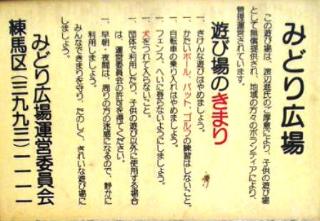 みどり広場
この遊び場は、渡辺遊氏のご厚意により、子供の遊び場
として無償提供され、地域の方々のボランティアにより、
管理運営されています。
遊び場のきまり
一、きけんな遊びはやめましょう。
一、かたいボール、バット、ゴルフの練習はしないこと。
一、自転車の乗り入れはやめましょう。
一、フェンス、へいに登らないようにしましょう。
一、犬をつれて入らないこと。
一、団体で利用したり、子供の遊び以外に使用する場合
は、運営委員会の許可を得てください。
一、早朝・夜間は、周りの方の迷惑になるので、静かに
利用しましょう。
みんなできまりを守り、たのしくて、きれいな遊び場に
しましょう。
みどり広場運営委員会
練馬区(三九九三)一一一一